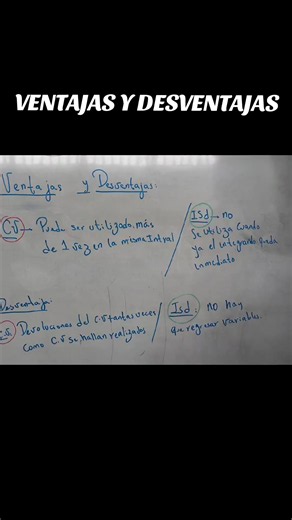 VENTAJAS Y DESVENTAJAS
Ventajas y Desventajas:
C.V → Puede ser utilizado más
de 1 vez en la misma Intral
Isd → no
Se utiliza cuando
ya el integrando queda
inmediato
Desventaja:
C.V. Devoluciones del C.V tantas veces
como C.V se hallan realizados
Isd: no hay
que regresar variables.